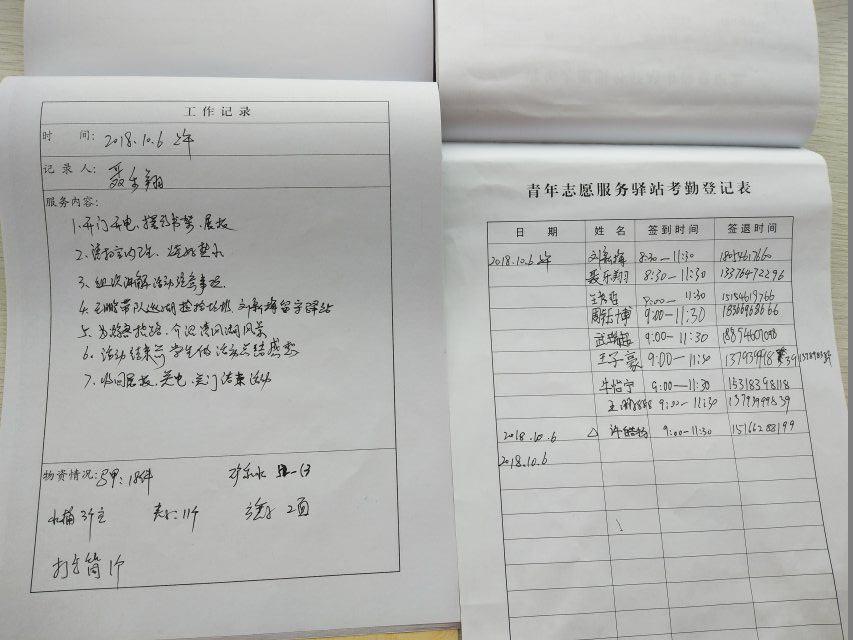 工作记录
时 间: 2018.10.6 上午
记录人: 聂乐翔
服务内容:
1.开门开电,摆放书架、展板
2.清扫室内卫生,烧好热水
3.组织讲解活动注意事项
4.王鹏带队巡湖捡拾垃圾,刘新梅留守驿站
5.为游客指路,介绍清风湖风景
6.活动结束后学生做活动总结感想
7.收回展板,关电,关门结束活动
物资情况: 马甲:18件 矿泉水
水桶 夹子:11个 2面
打气筒1个
青年志愿服务驿站考勤登记表
日 期 姓 名 签到时间 签退时间
2018.10.6 上午 8:30—11:30 18054617660
聂乐翔 8:30—11:30 13376472296
9:00—11:30 15154619766
周乐博 9:00—11:30 18366968666
9:00—11:30 18854607098
王子豪 9:00—11:30
牛怡宁 9:00—11:30 15318398118
9:00—11:30 13793999839
2018.10.6 △ 9:00—11:30 15166288199
2018.10.6